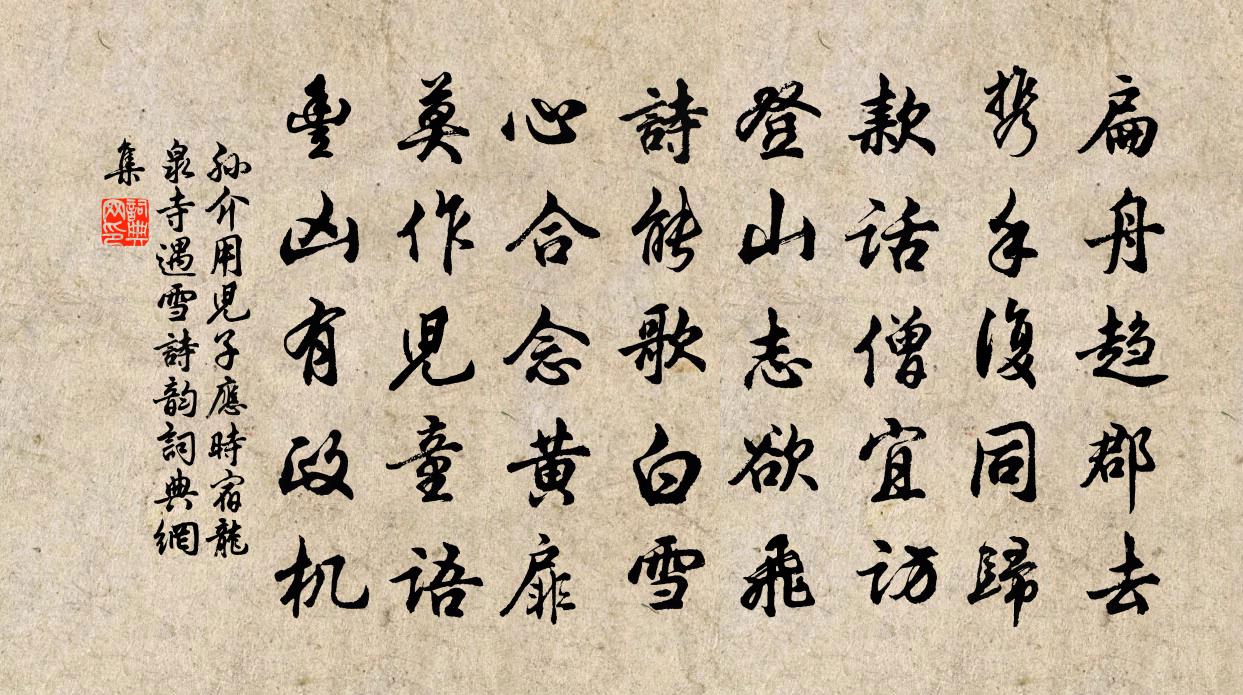 扁舟趋郡去
携手復同歸
款話僧宜訪
登山志欲飛
詩能歌白雪
心合念黄扉
莫作兒童語
豊凶有政机
孫介用兒子應時宿龍
泉寺遇雪詩韵詞典網
集
詞典網印